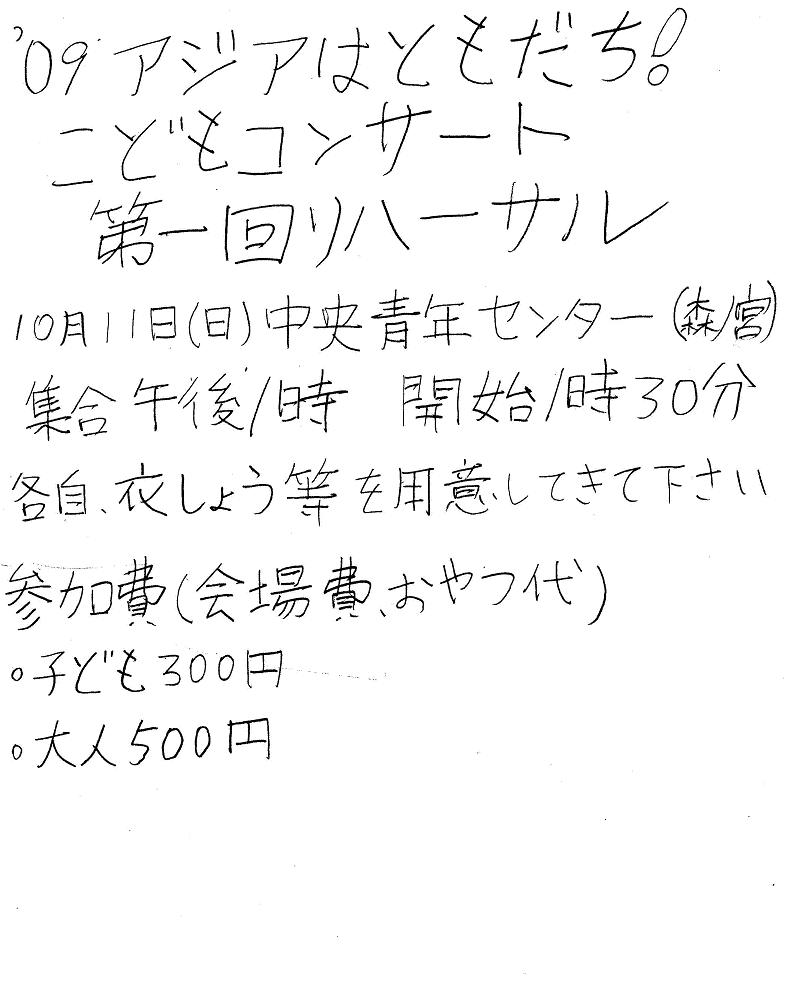 '09 アジアはともだち!
こどもコンサート
第一回リハーサル
10月11日(日)中央青年センター(森ノ宮)
集合午後1時 開始1時30分
各自、衣しょう等を用意してきて下さい
参加費(会場費、おやつ代)
。子ども300円
。大人500円